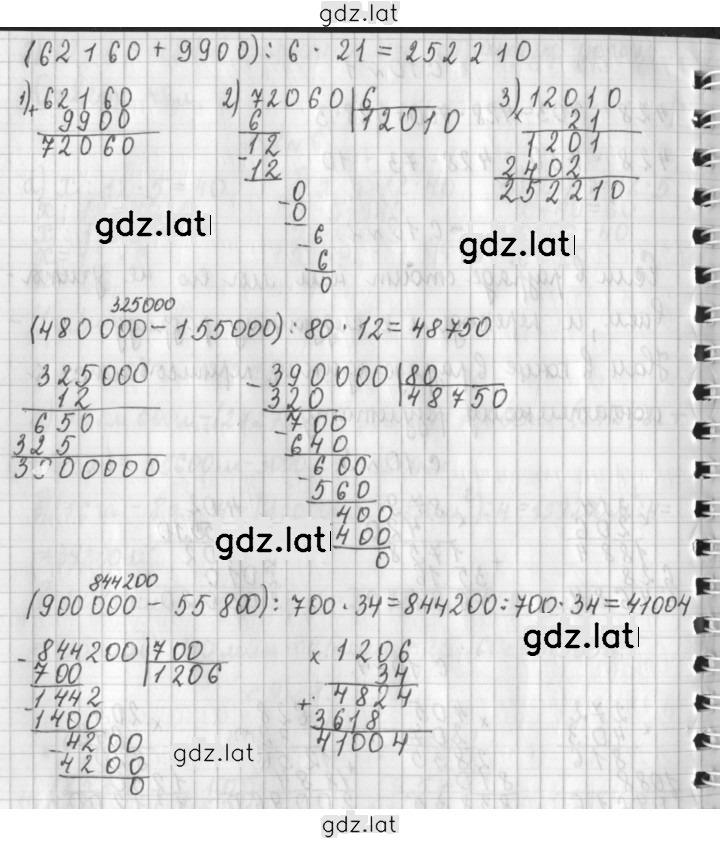 gdz.lat
(62160 + 9900) : 6 · 21 = 252210
1) + 62160
9900
72060
2) 72060 | 6
6 12010
12
- 12
0
- 0
6
- 6
0
3) × 12010
21
1201
2402
252210
gdz.lat
gdz.lat
325000
(480000 - 155000) : 80 · 12 = 48750
325000
12
650
325
- 390000 | 80
320 48750
- 700
640
- 600
560
400
400
0
gdz.lat
844200
(900000 - 55800) : 700 · 34 = 844200 : 700 · 34 = 41004
gdz.lat
- 844200 | 700
700 1206
1442
- 1400
- 4200
4200
0
× 1206
34
+ 4824
3618
41004
gdz.lat
gdz.lat